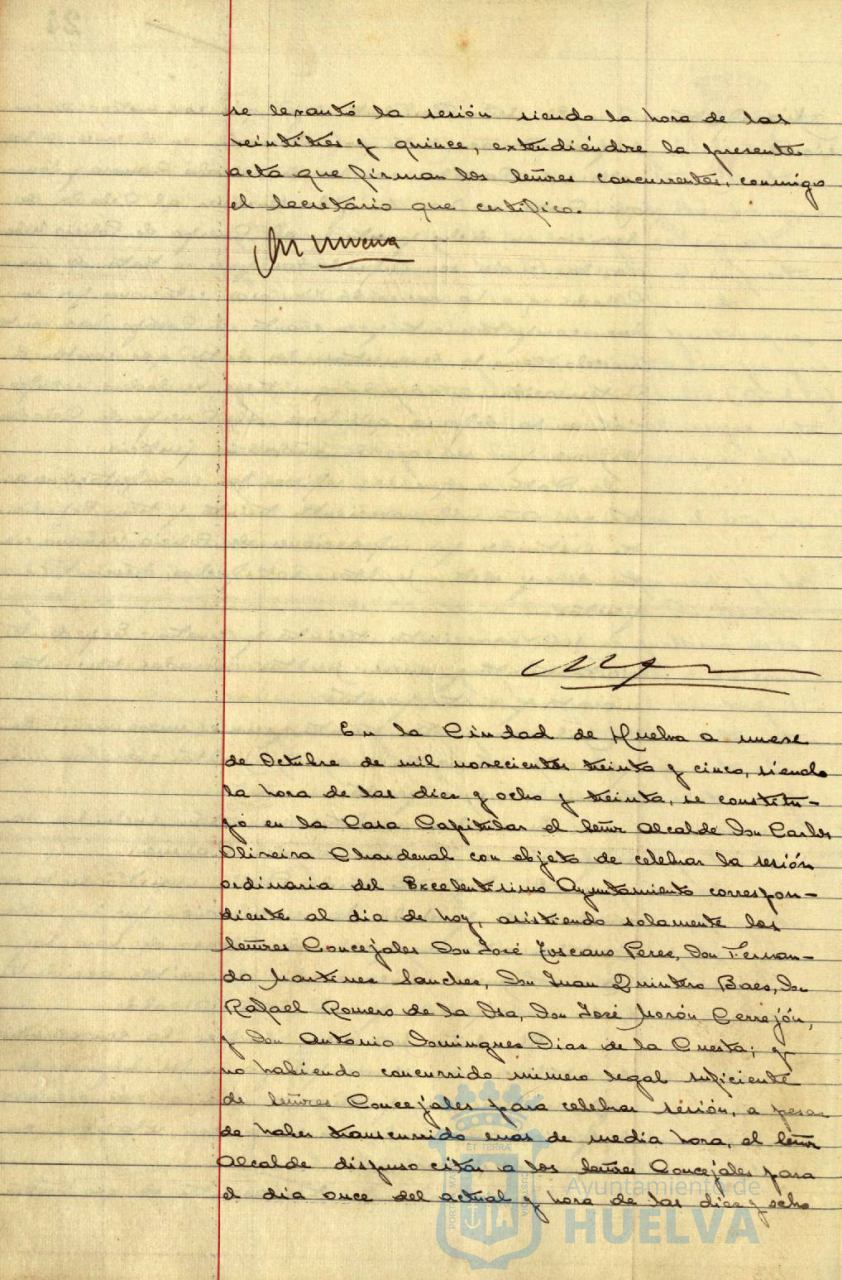 se levantó la sesión siendo la hora de las
veintitrés y quince, extendiéndose la presente
acta que firman los señores concurrentes, conmigo
el Secretario que certifico.
En la Ciudad de Huelva a nueve
de Octubre de mil novecientos treinta y cinco, siendo
la hora de las diez y ocho y treinta, se constitu-
yó en la Casa Capitular el Señor Alcalde Don Carlos
Oliveira Chardenal con objeto de celebrar la sesión
ordinaria del Excelentísimo Ayuntamiento correspon-
diente al dia de hoy, asistiendo solamente los
Señores Concejales Don José Toscano Perez, Don Fernan-
do Martinez Sanchez, Don Juan Quintero Baez, Don
Rafael Romero de la Osa, Don José Morón Cerrejón,
y Don Antonio Dominguez Diaz de la Cuesta; y
no habiendo concurrido número legal suficiente
de Señores Concejales para celebrar sesión, a pesar
de haber transcurrido mas de media hora, el Señor
Alcalde dispuso citar a los Señores Concejales para
el dia once del actual y hora de las diez y ocho
Ayuntamiento de
HUELVA